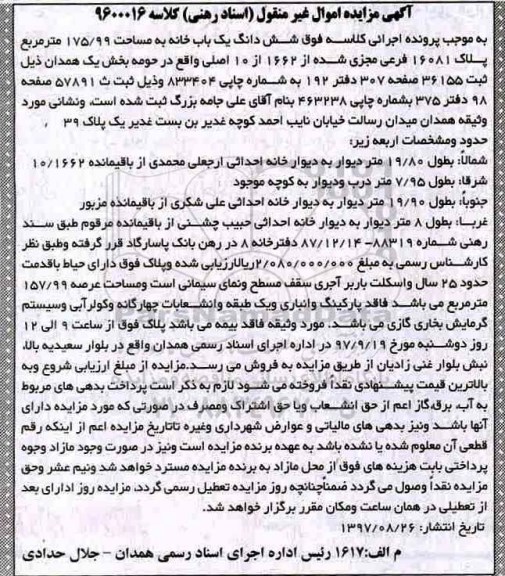 آگهی مزایده اموال غیر منقول (اسناد رهنی) کلاسه ۹۶۰۰۰۱۶
به موجب پرونده اجرائی کلاسه فوق شش دانگ یک باب خانه به مساحت ۱۷۵/۹۹ مترمربع
پلاک ۱۶۰۸۱ فرعی مجزی شده از ۱۶۶۲ از ۱۰ اصلی واقع در حومه بخش یک همدان ذیل
ثبت ۳۶۱۵۵ صفحه ۳۰۷ دفتر ۱۹۲ به شماره چاپی ۸۳۳۴۰۴ وذیل ثبت ث ۵۷۸۹۱ صفحه
۹۸ دفتر ۳۷۵ بشماره چاپی ۴۶۳۲۳۸ بنام آقای علی جامه بزرگ ثبت شده است، ونشانی مورد
وثیقه همدان میدان رسالت خیابان نایب احمد کوچه غدیر بن بست غدیر یک پلاک ۳۹ ،
حدود ومشخصات اربعه زیر:
شمالا: بطول ۱۹/۸۰ متر دیوار به دیوار خانه احداثی ارجعلی محمدی از باقیمانده ۱۰/۱۶۶۲
شرقا: بطول ۷/۹۵ متر درب ودیوار به کوچه موجود
جنوبا: بطول ۱۹/۹۰ متر دیوار به دیوار خانه احداثی علی شکری از باقیمانده مزبور
غربا: بطول ۸ متر دیوار به دیوار خانه احداثی حبیب چشنی از باقیمانده مرقوم طبق سند
رهنی شماره ۸۸۳۱۹– ۸۷/۱۲/۱۴ دفترخانه ۸ در رهن بانک پاسارگاد قرر گرفته وطبق نظر
کارشناس رسمی به مبلغ ۲/۰۸۰/۰۰۰/۰۰۰ریالارزیابی شده وپلاک فوق دارای حیاط باقدمت
حدود ۲۵ سال واسکلت باربر آجری سقف مسطح ونمای سیمانی است ومساحت عرصه ۱۵۷/۹۹
مترمربع می باشد فاقد پارکینگ وانباری ویک طبقه وانشعابات چهارگانه وکولرآبی وسیستم
گرمایش بخاری گازی می باشد. مورد وثیقه فاقد بیمه می باشد پلاک فوق از ساعت ۹ الی ۱۲
روز دوشنبه مورخ ۹۷/۹/۱۹ در اداره اجرای اسناد رسمی همدان واقع در بلوار سعیدیه بالا،
نبش بلوار غنی زادیان از طریق مزایده به فروش می رسد.مزایده از مبلغ ارزیابی شروع وبه
بالاترین قیمت پیشنهادی نقداً فروخته می شود لازم به ذکر است پرداخت بدهی های مربوط
به آب، برق،گاز اعم از حق انشعاب ویا حق اشتراک ومصرف در صورتی که مورد مزایده دارای
آنها باشد ونیز بدهی های مالیاتی و عوارض شهرداری وغیره تاتاریخ مزایده اعم از اینکه رقم
قطعی آن معلوم شده یا نشده باشد به عهده برنده مزایده است ونیز در صورت وجود مازاد وجوه
پرداختی بابت هزینه های فوق از محل مازاد به برنده مزایده مسترد خواهد شد ونیم عشر وحق
مزایده نقداً وصول می گردد ضمناًچنانچه روز مزایده تعطیل رسمی گردد، مزایده روز ادارای بعد
از تعطیلی در همان ساعت ومکان مقرر برگزار خواهد شد.
تاریخ انتشار: ۱۳۹۷/۰۸/۲۶
م الف:۱۶۱۷ رئیس اداره اجرای اسناد رسمی همدان – جلال حدادی